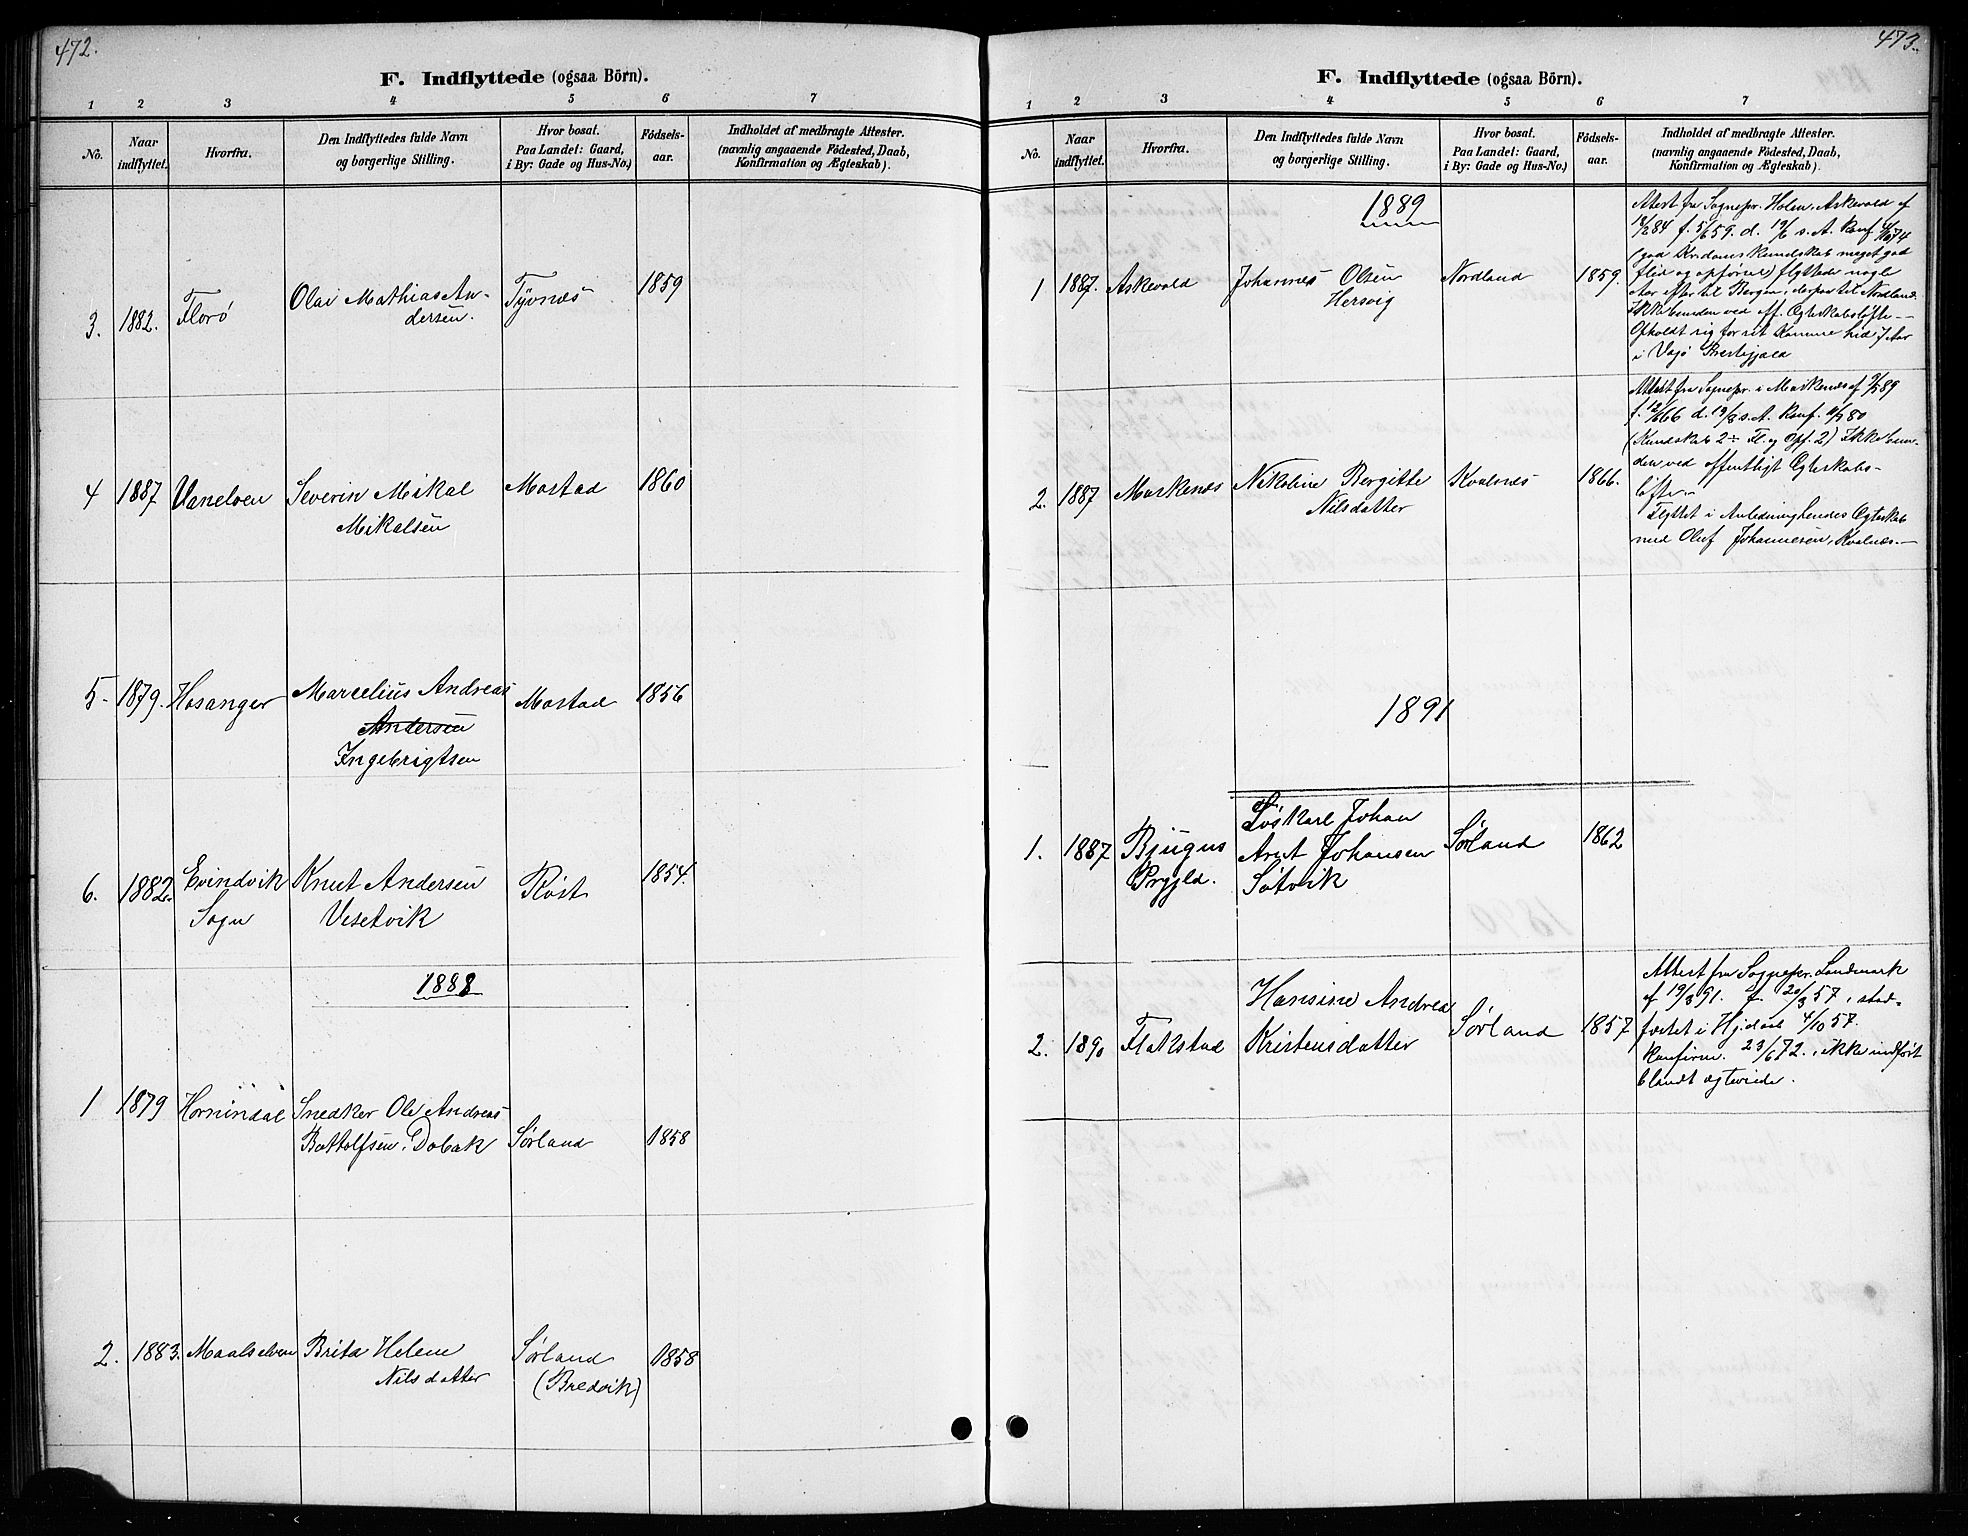 472.
F. Indflyttede (ogsaa Börn).
1 2 3 4 5 6 7
No. Naar indflyttet. Hvorfra. Den Indflyttedes fulde Navn og borgerlige Stilling. Hvor bosat. Paa Landet: Gaard, i By: Gade og Hus-No.) Födsels-aar. Indholdet af medbragte Attester. (navnlig angaaende Födested, Daab, Konfirmation og Ægteskab).
3. 1882. Florø Olai Mathias An- Tyvnæs 1859
dersen.
4 1887 Vanelven Severin Mikal Mostad 1860
Mikalsen
5. 1879. Hosanger Marcelius Andreas Mostad 1856
Andersen
Ingebrigtsen
6. 1882. Evindvik Knut Andersen Røst 1854.
Sogn Vesetvik
1888
1 1879 Hornindal Snedker Ole Andreas
Bottolfsen, Dobak Sørland 1858
2. 1883. Maalselven Brita Helene Sørland 1858
Nilsdatter (Bredvik)
473.
F. Indflyttede (ogsaa Börn).
1 2 3 4 5 6 7
No. Naar indflyttet. Hvorfra. Den Indflyttedes fulde Navn og borgerlige Stilling. Hvor bosat. Paa Landet: Gaard, i By: Gade og Hus-No.) Födsels-aar. Indholdet af medbragte Attester. (navnlig angaaende Födested, Daab, Konfirmation og Ægteskab).
1889
1 1887. Askevold Johannes Olsen Nordland 1859.
Hersvig
Attest fra Sognepr. Holm, Askevold af
84 f. 5/6 59. d. 19/6 s. A. konf.
(god Kristendomskundskab meget god
flid og opførsel) flyttede nogle
Aar efter til Bergen, derpaa til Nordland.
Ikke bunden ved off. Egteskabsløfte.—
Opholdt sig før sit Komme hid 7 Aar
i Vaagø Prestegjæld
2. 1887 Moskenæs Nikoline Bergitte Kvalnæs 1866.
Nilsdatter
Attest fra Sognepr. i Moskenæs af 89
f. 66 d. 19/8 s. A. konf. 80
(Kundskab 2÷ Fl. og Opf. 2) Ikke bun-
den ved offentligt Egteskabs-
løfte.—
Flyttet i Anledning hendes Egteskab
med Oluf Johannesen, Kvalnæs.—
1891
1. 1887 Bjugns Løskarl Johan Sørland 1862
Prgjld. Arnt Johansen
Søtvik
2. 1890 Flakstad Hansine Andrea Sørland 1857
Kristensdatter
Attest fra Sognepr. Landmark
af 19/3 91. f. 20/3 57, stad-
fæstet i 4/10 57.
konfirm. 23/6 72., ikke indført
blandt ægteviede.